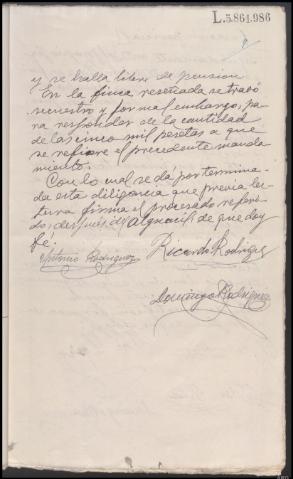 L.5.861.986
y se halla libre de pension
En la finca reseñada se trabó
secuestro y formal embargo, pa
ra responder de la cantidad
de las cinco mil pesetas a que
se refiere el precedente manda
miento.
Con lo cual se dá por termina
da esta diligencia que previa lec
tura firma el procesado referi
do, despues del Alguacil, de que doy
fé:
Antonio Rodriguez Ricardo Rodriguez
Domingo Rodriguez